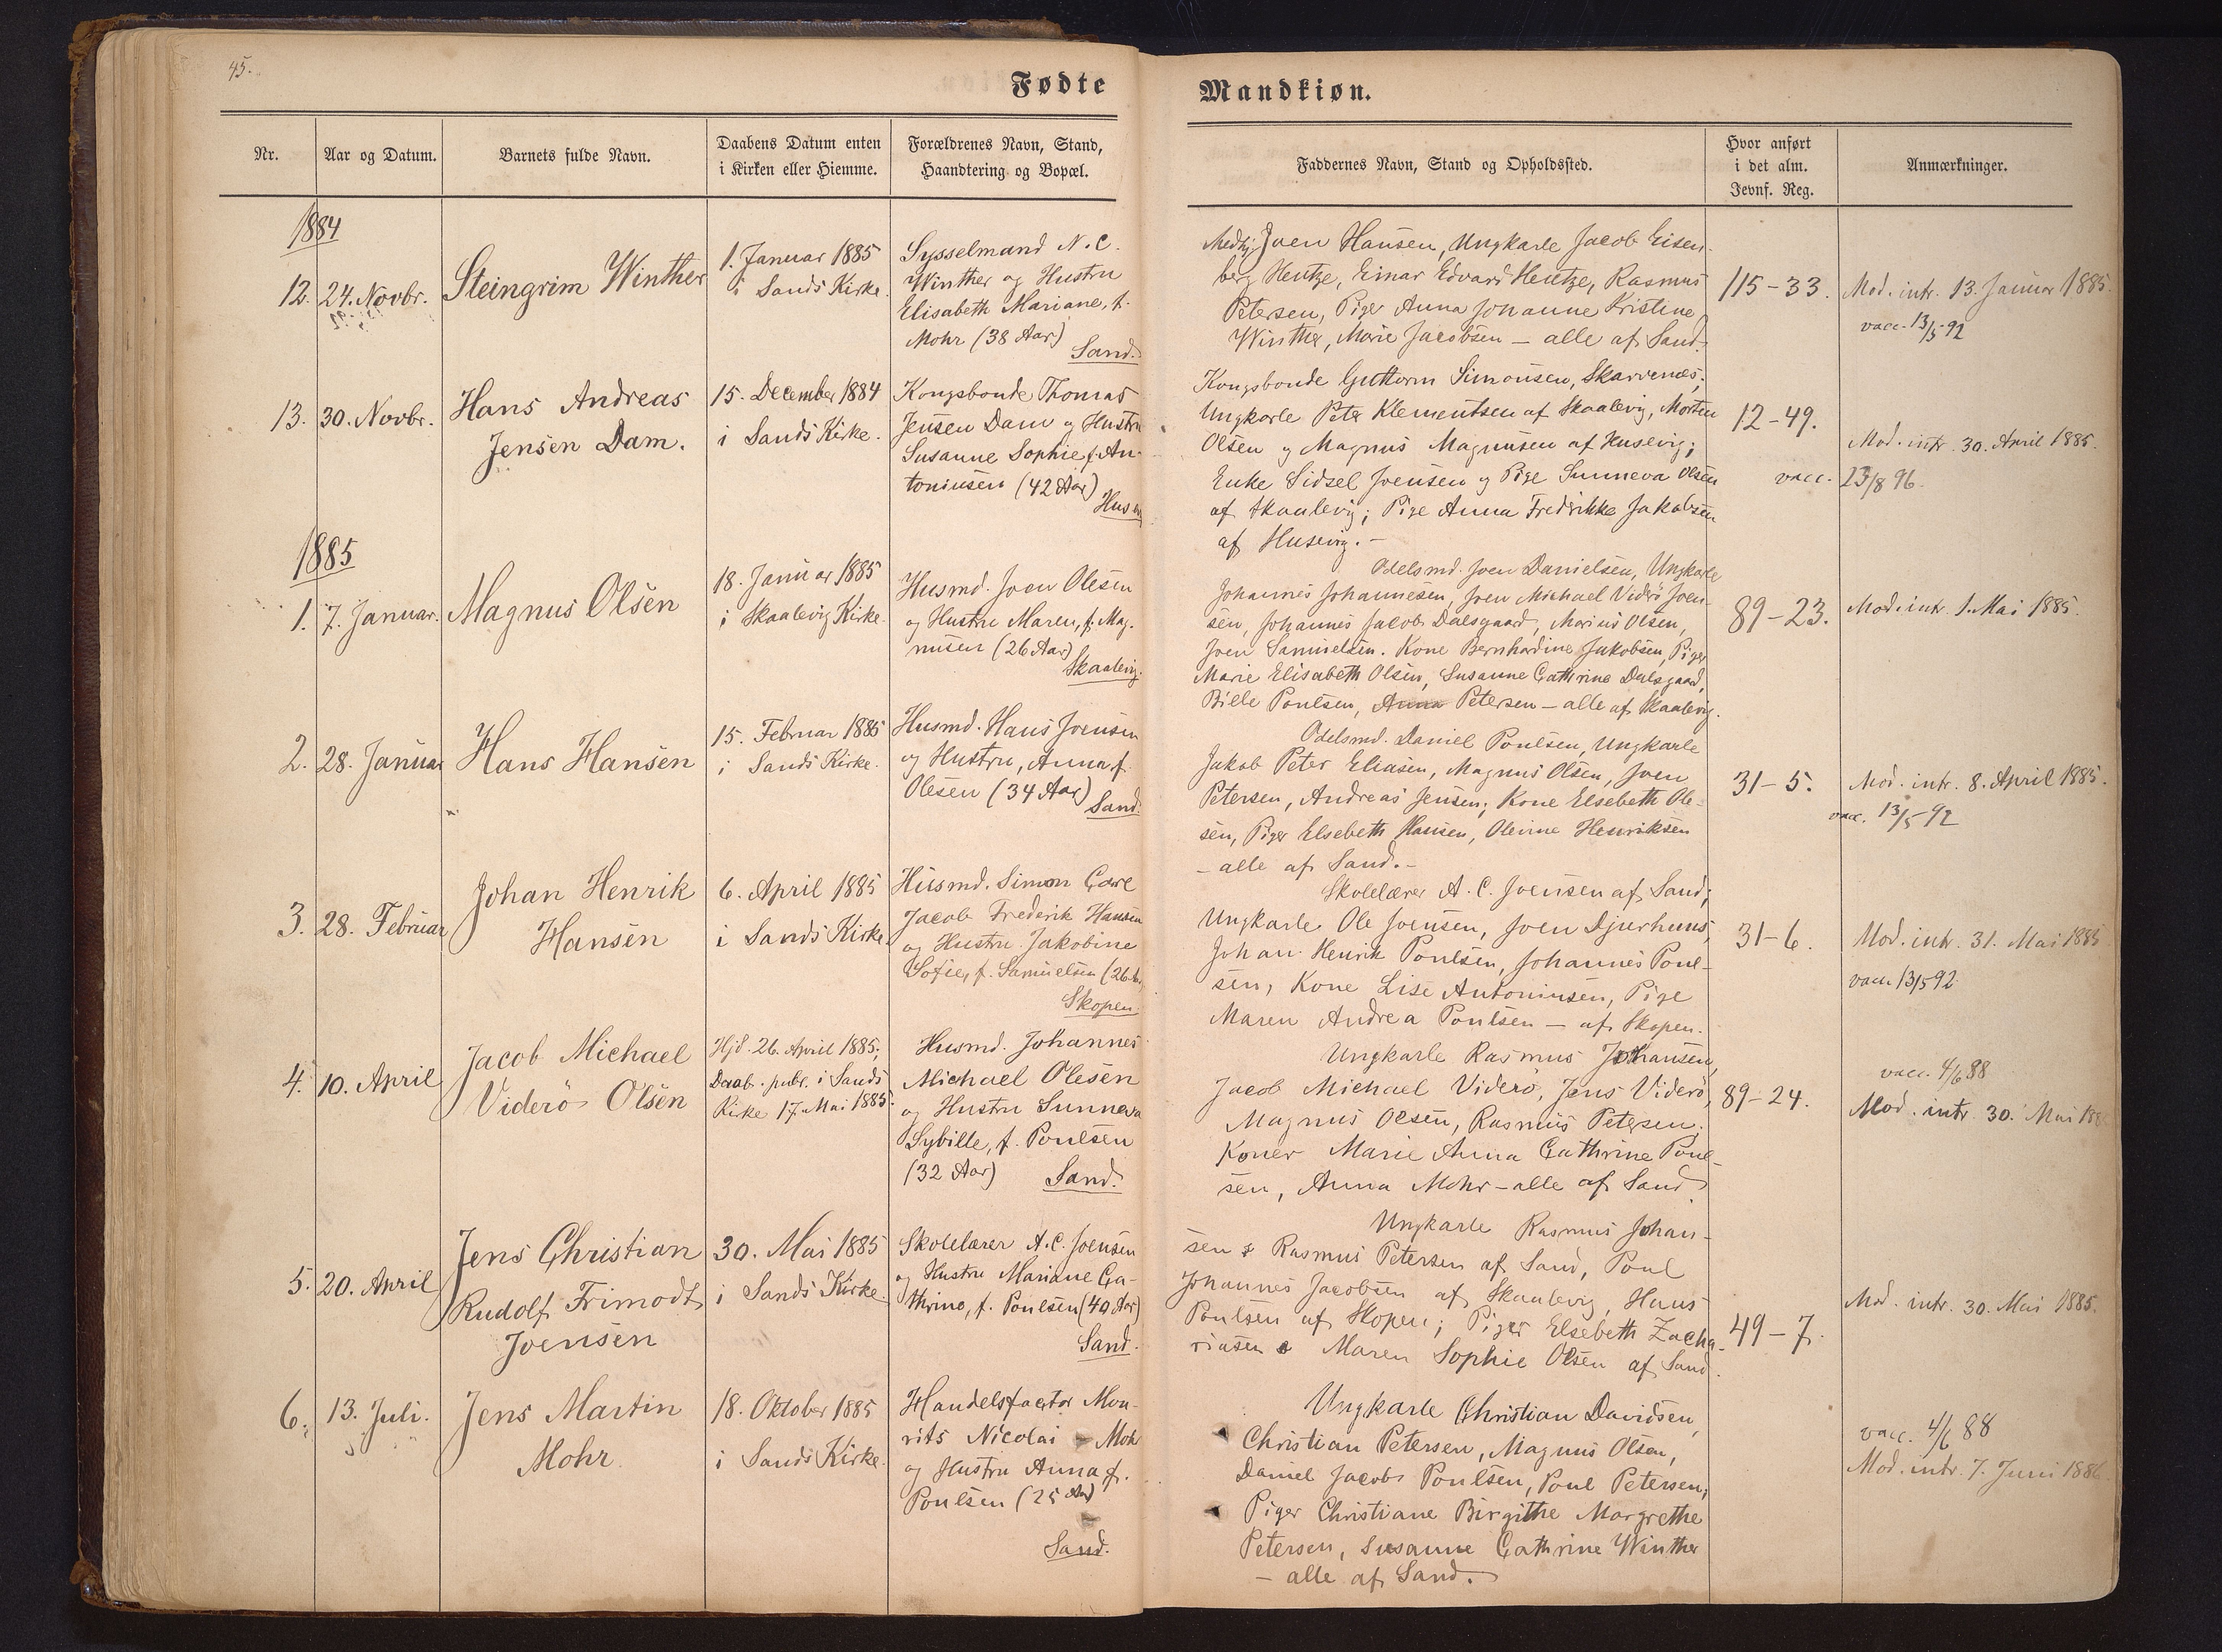 45.
Fødte
Mandkiøn.
Nr.
Aar og Datum.
Barnets fulde Navn.
Daabens Datum enten
i Kirken eller Hiemme.
Forældrenes Navn, Stand,
Haandtering og Bopæl.
Faddernes Navn, Stand og Opholdssted.
Hvor anført
i det alm.
Jevnf. Reg.
Anmærkninger.
1884
12. 24. Novbr.
Steingrim Winther
1. Januar 1885
i Sands Kirke.
Sysselmand N. C.
Winther og Hustru
Elisabeth Mariane, f.
Mohr (38 Aar)
Sand.
Joen Hansen, Ungkarle Jacob Eisen-
berg Hentze, Einar Edvard Hentze, Rasmus
Petersen, Piger Anna Johanne Kristine
Winther, Marie Jacobsen — alle af Sand.
115-33.
Mod. intr. 13. Januar 1885.
vacc. 13/5 92
13. 30. Novbr.
Hans Andreas
Jensen Dam.
15. December 1884
i Sands Kirke.
Kongsbonde Thomas
Jensen Dam og Hustru
Susanne Sophie f. An-
toniusen (42 Aar)
Kongsbonde Guttorm Simonsen, Skarvenæs;
Ungkarle Peter Klementsen af Skaalevig, Morten
Olsen og Magnus Magnusen af Husevig;
Enke Sidsel Joensen og Pige Sunneva Olsen
af Skaalevig; Pige Anna Fredrikke Jakobsen
af Husevig. -
12-49.
Mod. intr. 30. April 1885.
vacc. 23/8 96.
1885
1. 7. Januar.
Magnus Olsen
18. Januar 1885
i Skaalevig Kirke.
Husmd. Joen Olesen
og Hustru Maren, f. Mag-
nusen (26 Aar)
Skaalevig.
Odelsmd. Joen Danielsen, Ungkarle
Johannes Johannesen, Joen Michael Viderö Joen-
sen, Johannes Jacob Dalsgaard, Marius Olsen,
Joen Samuelsen. Kone Bernhardine Jakobsen, Piger
Marie Elisabeth Olsen, Susanne Cathrine Dalsgaard,
Bille Poulsen, Anna Petersen — alle af Skaalevig.
89-23.
Mod. intr. 1. Mai 1885.
2. 28. Januar
Hans Hansen
15. Februar 1885
i Sands Kirke.
Husmd. Hans Joensen
og Hustru, Anna f.
Olesen (34 Aar)
Sand.
Odelsmd. Daniel Poulsen, Ungkarle
Jakob Peter Eliasen, Magnus Olsen, Joen
Petersen, Andreas Jensen; Kone Elsebeth Ole-
sen, Piger Elsebeth Hansen, Olevine Henriksen
- alle af Sand. -
31-5.
Mod. intr. 8. April 1885.
vacc. 13/5 92
3. 28. Februar
Johan Henrik
Hansen
6. April 1885
i Sands Kirke.
Husmd. Simon Carl
Jacob Frederik Hansen
og Hustru Jakobine
Sofie, f. Samuelsen (26
Skopen.
Skolelærer A. C. Joensen af Sand;
Ungkarle Ole Joensen, Joen Djurhuus,
Johan Henrik Poulsen, Johannes Poul-
sen, Kone Lise Antoniusen, Pige
Maren Andrea Poulsen — af Skopen.
31-6.
Mod. intr. 31. Mai 1885
vacc. 13/5 92
4. 10. April
Jacob Michael
Viderö Olsen
Hjd. 26. April 1885;
Daab. publ. i Sands
Kirke 17. Mai 1885.
Husmd. Johannes
Michael Olesen
og Hustru Sunneva
Sybille, f. Poulsen
(32 Aar) Sand.
Ungkarle Rasmus Johansen,
Jacob Michael Viderö, Jens Viderö,
Magnus Olsen, Rasmus Petersen;
Koner Marie Anna Cathrine Poul-
sen, Anna Mohr — alle af Sand.
89-24.
vacc. 4/6 88
Mod. intr. 30. Mai 188
5. 20. April
Jens Christian
Rudolf Frimodt
Joensen
30. Mai 1885
i Sands Kirke.
Skolelærer A. C. Joensen
og Hustru Mariane Ca-
thrine, f. Poulsen (40 Aar)
Sand.
Ungkarle Rasmus Johan-
sen & Rasmus Petersen af Sand, Poul
Johannes Jacobsen af Skaalevig, Hans
Poulsen af Skopen; Piger Elsebeth Zacha-
riasen & Maren Sophie Olsen af Sand.
49-7.
Mod. intr. 30. Mai 1885.
6. 13. Juli.
Jens Martin
Mohr
18. Oktober 1885
i Sands Kirke.
Handelsfactor Mou-
rits Nicolai Mohr
og Hustru Anna f.
Poulsen (25 Aar)
Sand.
Ungkarle Christian Davidsen,
Christian Petersen, Magnus Olsen,
Daniel Jacob Poulsen, Poul Petersen;
Piger Christiane Birgithe Margrethe
Petersen, Susanne Cathrine Winther
- alle af Sand.
vacc. 4/6 88
Mod. intr. 7. Juni 1886.